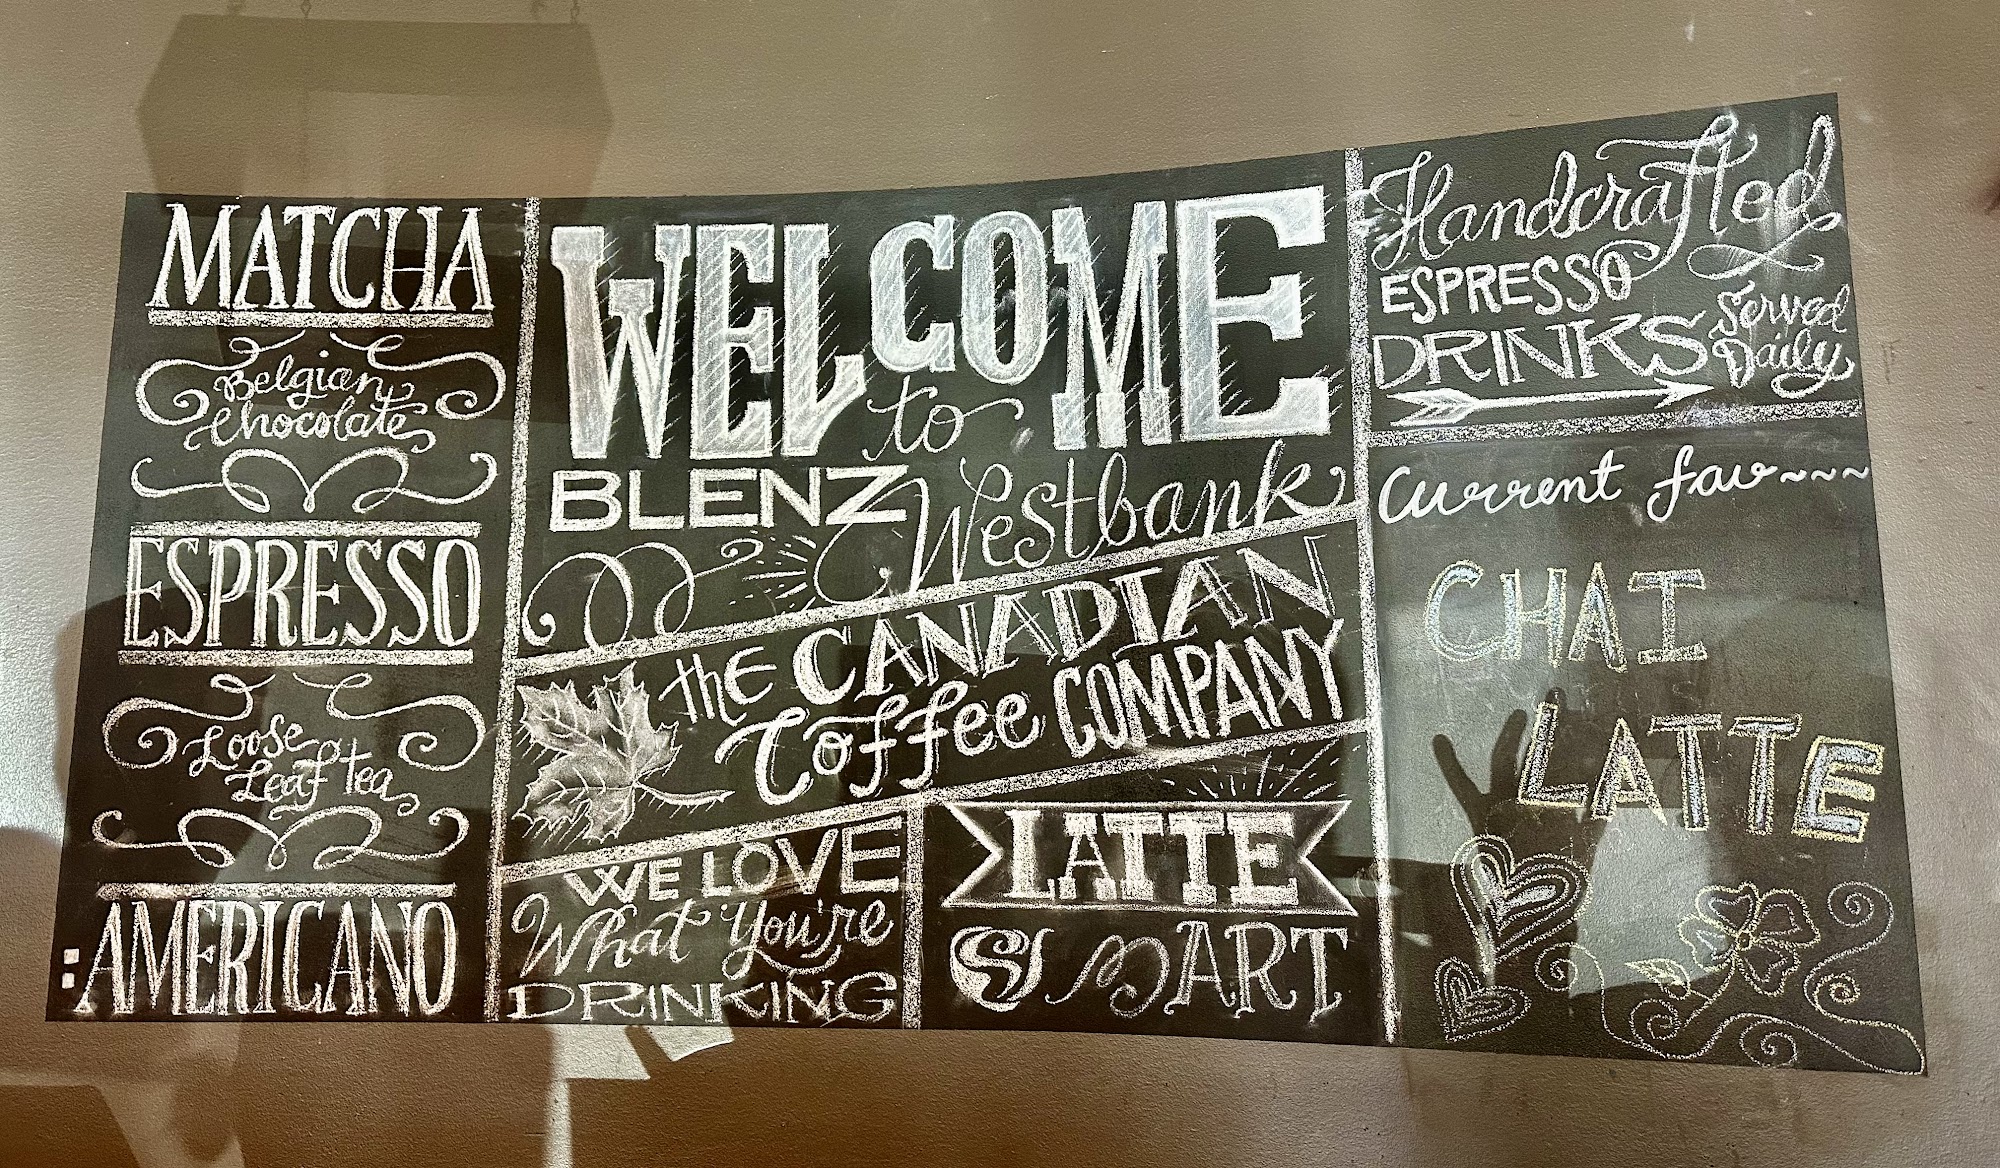 MATCHA
Belgian
Chocolate
ESPRESSO
Loose
Leaf tea
:AMERICANO
WELCOME
to
BLENZ Westbank
the CANADIAN
Coffee COMPANY
WE LOVE
What You're
DRINKING
LATTE
ART
Handcrafted
ESPRESSO
DRINKS Served
Daily
Current fav~~~~
CHAI
LATTE